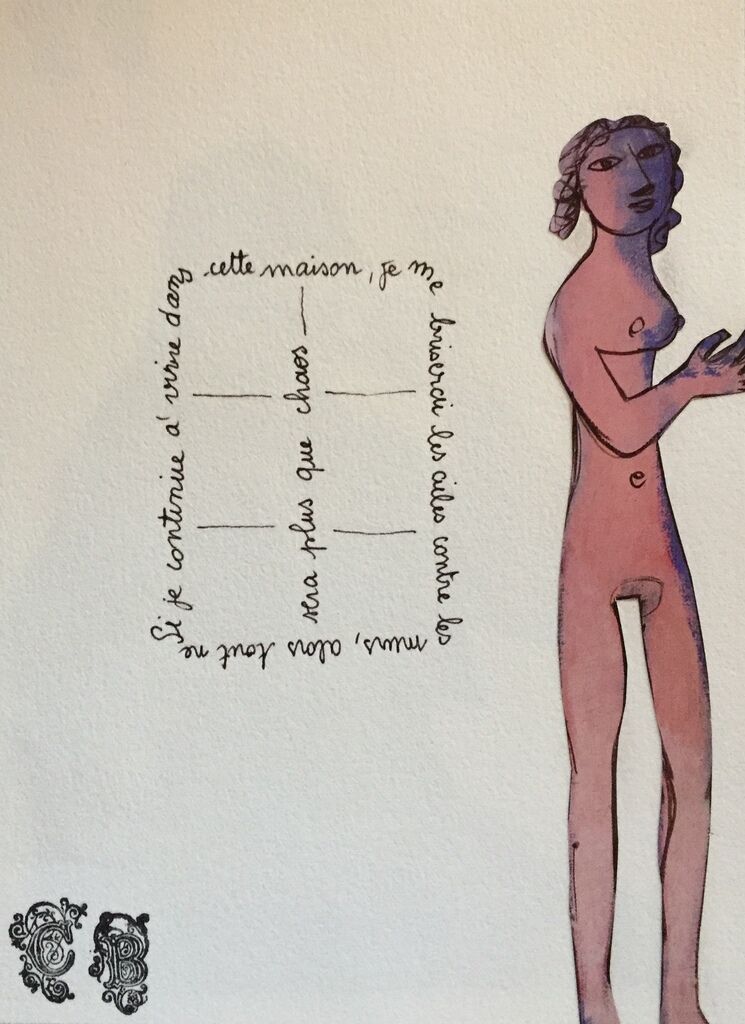 Si je continue à vivre dans
cette maison, je me
briserai les ailes contre les
murs, alors tout ne
sera plus que chaos
C B